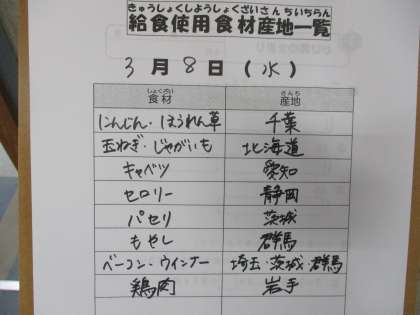 きゅうしょくしようしょくざいさんちいちらん
給食使用食材産地一覧
3月8日(水)
しょくざい さんち
食材 産地
にんじん・ほうれん草 千葉
玉ねぎ・じゃがいも 北海道
キャベツ 愛知
セロリー 静岡
パセリ 茨城
もやし 群馬
ベーコン・ウインナー 埼玉・茨城・群馬
鶏肉 岩手